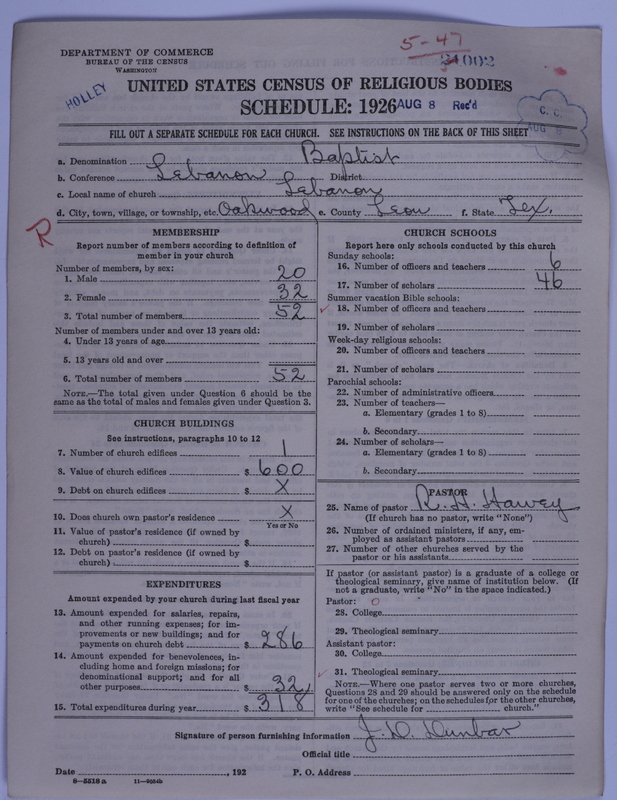 DEPARTMENT OF COMMERCE
BUREAU OF THE CENSUS
WASHINGTON
HOLLEY
5-47
002
UNITED STATES CENSUS OF RELIGIOUS BODIES
SCHEDULE: 1926 AUG 8 Rec'd
C. C.
AUG
FILL OUT A SEPARATE SCHEDULE FOR EACH CHURCH. SEE INSTRUCTIONS ON THE BACK OF THIS SHEET
a. Denomination Baptist
b. Conference Lebanon District
c. Local name of church Lebanon
d. City, town, village, or township, etc. Oakwood e. County Leon f. State Tex.
R
MEMBERSHIP
Report number of members according to definition of
member in your church
Number of members, by sex:
1. Male 20
2. Female 32
3. Total number of members 52
Number of members under and over 13 years old:
4. Under 13 years of age
5. 13 years old and over
6. Total number of members 52
NOTE.—The total given under Question 6 should be the
same as the total of males and females given under Question 3.
CHURCH BUILDINGS
See instructions, paragraphs 10 to 12
7. Number of church edifices 1
8. Value of church edifices $ 600
9. Debt on church edifices $ X
10. Does church own pastor's residence X
Yes or No
11. Value of pastor's residence (if owned by
church) $
12. Debt on pastor's residence (if owned by
church) $
EXPENDITURES
Amount expended by your church during last fiscal year
13. Amount expended for salaries, repairs,
and other running expenses; for im-
provements or new buildings; and for
payments on church debt $ 286
14. Amount expended for benevolences, in-
cluding home and foreign missions; for
denominational support; and for all
other purposes $ 32
15. Total expenditures during year $ 318
CHURCH SCHOOLS
Report here only schools conducted by this church
Sunday schools:
16. Number of officers and teachers 6
17. Number of scholars 46
Summer vacation Bible schools:
18. Number of officers and teachers
19. Number of scholars
Week-day religious schools:
20. Number of officers and teachers
21. Number of scholars
Parochial schools:
22. Number of administrative officers
23. Number of teachers—
a. Elementary (grades 1 to 8)
b. Secondary
24. Number of scholars—
a. Elementary (grades 1 to 8)
b. Secondary
PASTOR
25. Name of pastor R. H. Hawey
(If church has no pastor, write "None")
26. Number of ordained ministers, if any, em-
ployed as assistant pastors
27. Number of other churches served by the
pastor or his assistants
If pastor (or assistant pastor) is a graduate of a college or
theological seminary, give name of institution below. (If
not a graduate, write "No" in the space indicated.)
Pastor: O
28. College
29. Theological seminary
Assistant pastor:
30. College
31. Theological seminary
NOTE.—Where one pastor serves two or more churches,
Questions 28 and 29 should be answered only on the schedule
for one of the churches; on the schedules for the other churches,
write "See schedule for church."
Signature of person furnishing information J. D. Dunbar
Official title
Date , 192 P. O. Address
8—5518 a 11—9554b